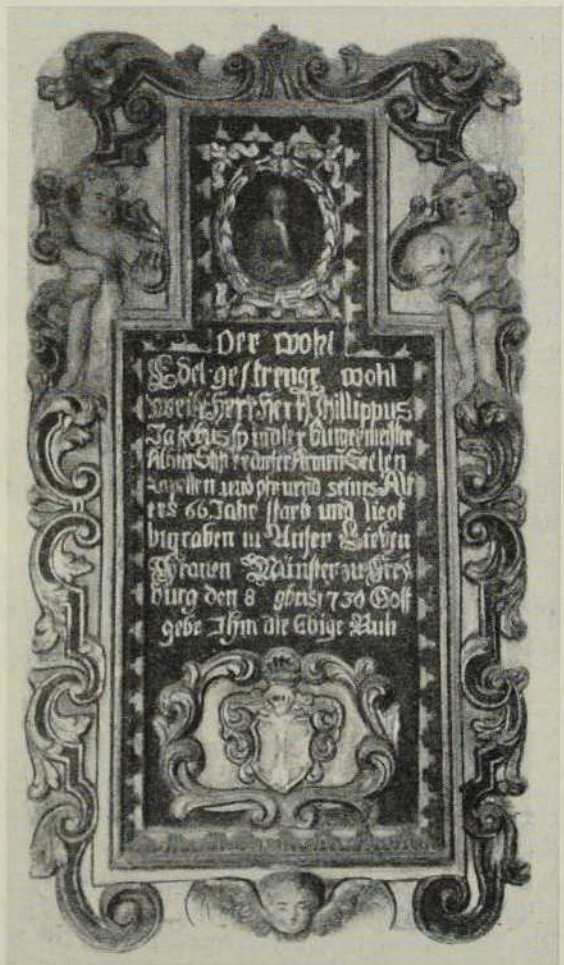 Der wohl
Edel gestrenge wohl
weise Herr Herr Phillippus
Jakobus spindler burgermeister
dieser Armen Seelen
Kapellen und pfrund seines Alt
ers 66 Jahr starb und ligt
bigraben in Unser Lieben
Frauen Münster zu Frey
burg den 8 9bris 1730 Gott
gebe Ihm die Ebige Ruh